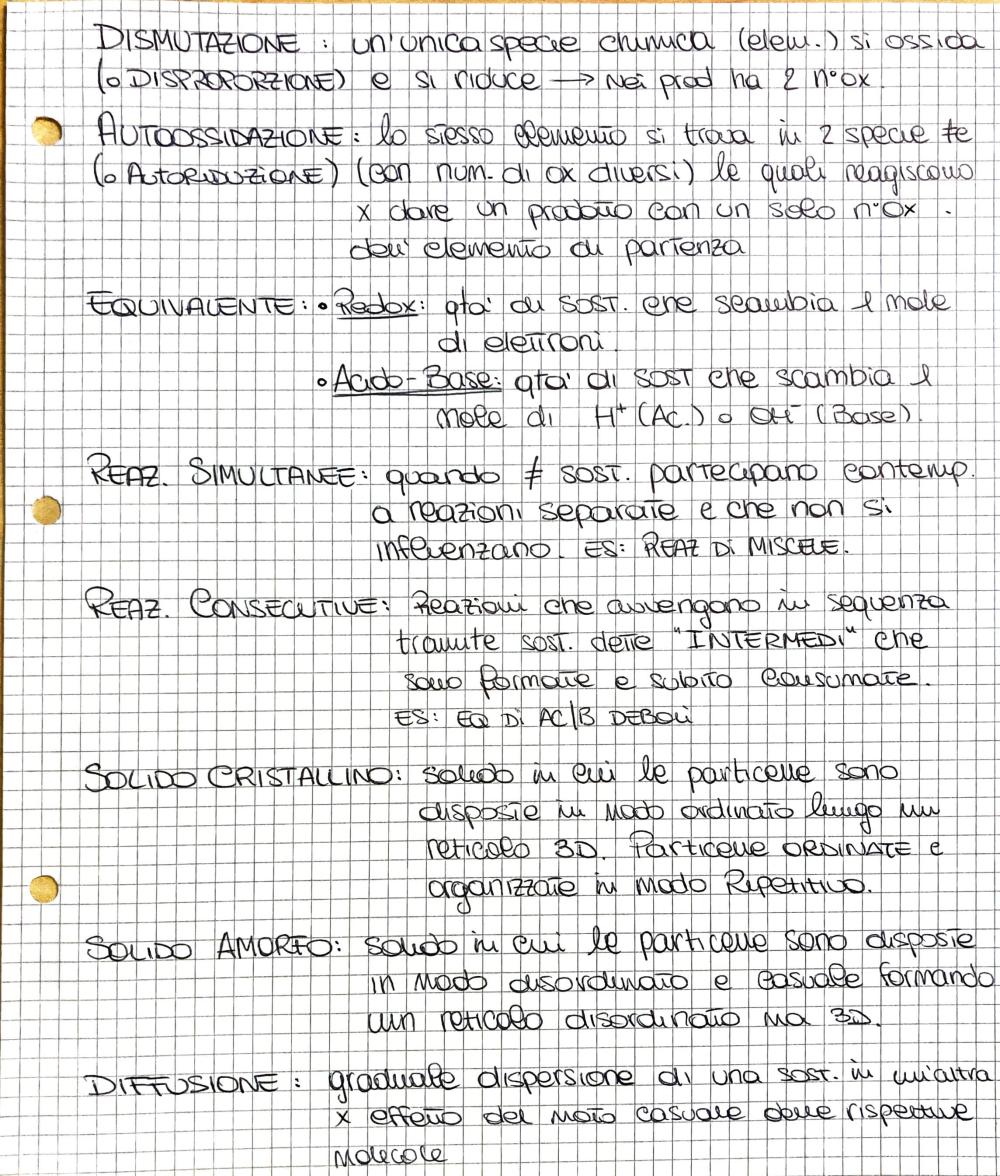 DISMUTAZIONE : un'unica specie chimica (elem.) si ossida
(o DISPROPORZIONE) e si riduce → Nei prod ha 2 n°ox.
AUTOOSSIDAZIONE : lo stesso elemento si trova in 2 specie ≠e
(o AUTORIDUZIONE) (con num. di ox diversi) le quali reagiscono
x dare un prodotto con un solo n°ox.
dell'elemento di partenza
EQUIVALENTE: • Redox: qtà di SOST. che scambia 1 mole
di elettroni
• Acido-Base: qtà di SOST che scambia 1
mole di H⁺ (Ac.) o OH⁻ (Base).
REAZ. SIMULTANEE: quando ≠ SOST. partecipano contemp.
a reazioni separate e che non si
influenzano. ES: REAZ DI MISCELE.
REAZ. CONSECUTIVE: Reazioni che avvengono in sequenza
tramite sost. dette "INTERMEDI" che
sono formate e subito consumate.
ES: EQ DI AC/B DEBOLI
SOLIDO CRISTALLINO: solido in cui le particelle sono
disposte in modo ordinato lungo un
reticolo 3D. Particelle ORDINATE e
organizzate in modo Ripetitivo.
SOLIDO AMORFO: solido in cui le particelle sono disposte
in modo disordinato e casuale formando
un reticolo disordinato ma 3D.
DIFFUSIONE : graduale dispersione di una sost. in un'altra
x effetto del moto casuale delle rispettive
molecole